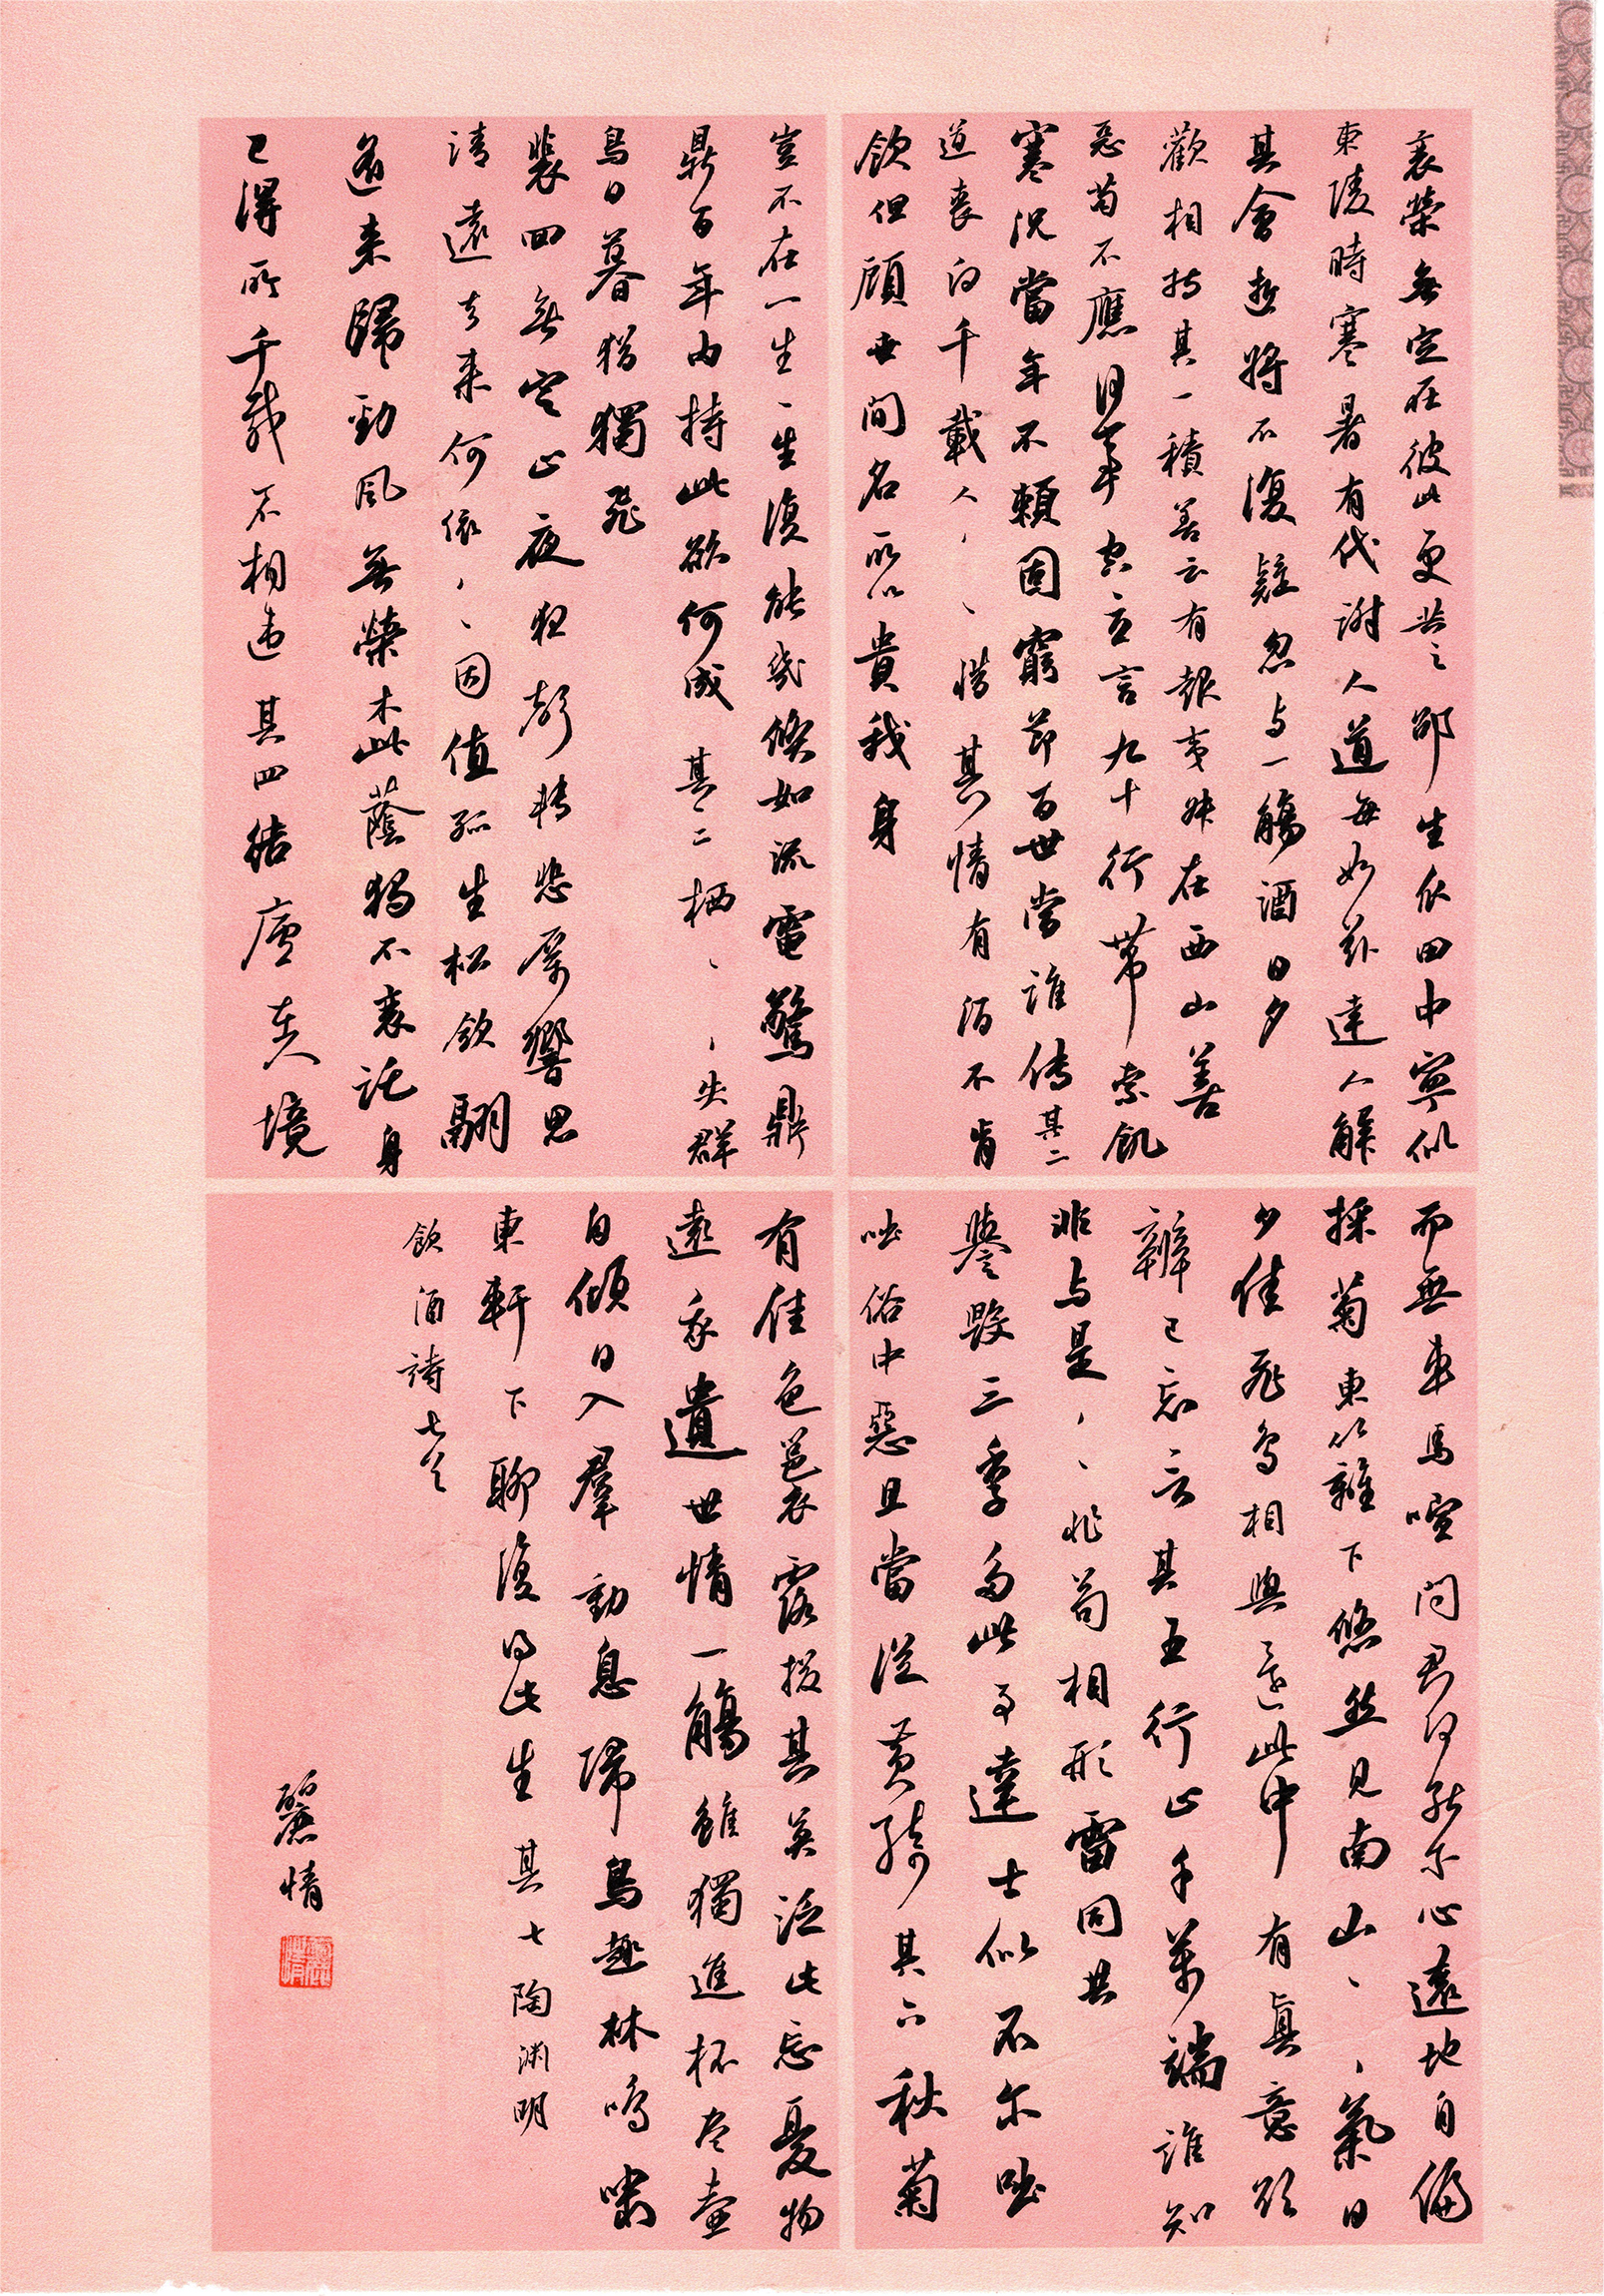 衰榮無定在彼此更共之邵生瓜田中寧似
東陵時寒暑有代謝人道每如茲達人解
其會逝將不復疑忽与一觴酒日夕
歡相持其一積善云有報夷叔在西山善
惡苟不應何事空立言九十行帶索飢
寒況當年不賴固窮節百世當誰傳其二
道喪向千載人、、惜其情有酒不肯
飲但顧世間名所以貴我身
豈不在一生一生復能幾倏如流電驚鼎
鼎百年內持此欲何成其二栖、、失群
鳥日暮猶獨飛
裴回無定止夜夜聲轉悲厲響思
清遠去來何依、、因值孤生松斂翮
遙來歸勁風無榮木此蔭獨不衰託身
已得所千載不相違其四結廬在人境
而無車馬喧問君何能尔心遠地自偏
採菊東籬下悠然見南山、、氣日
夕佳飛鳥相與還此中有真意欲
辨已忘言其五行止千萬端誰知
非与是、、非苟相形雷同共
譽毀三季多此事達士似不尔咄
咄俗中惡且當從黃綺其六秋菊
有佳色裛露掇其英泛此忘憂物
遠我遺世情一觴雖獨進杯盡壺
自傾日入羣動息歸鳥趨林鳴嘯
東軒下聊復得此生其七陶淵明
飲酒詩七首
麗情
麗情